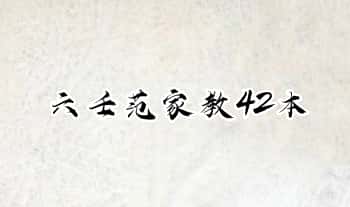 六壬范家教42本